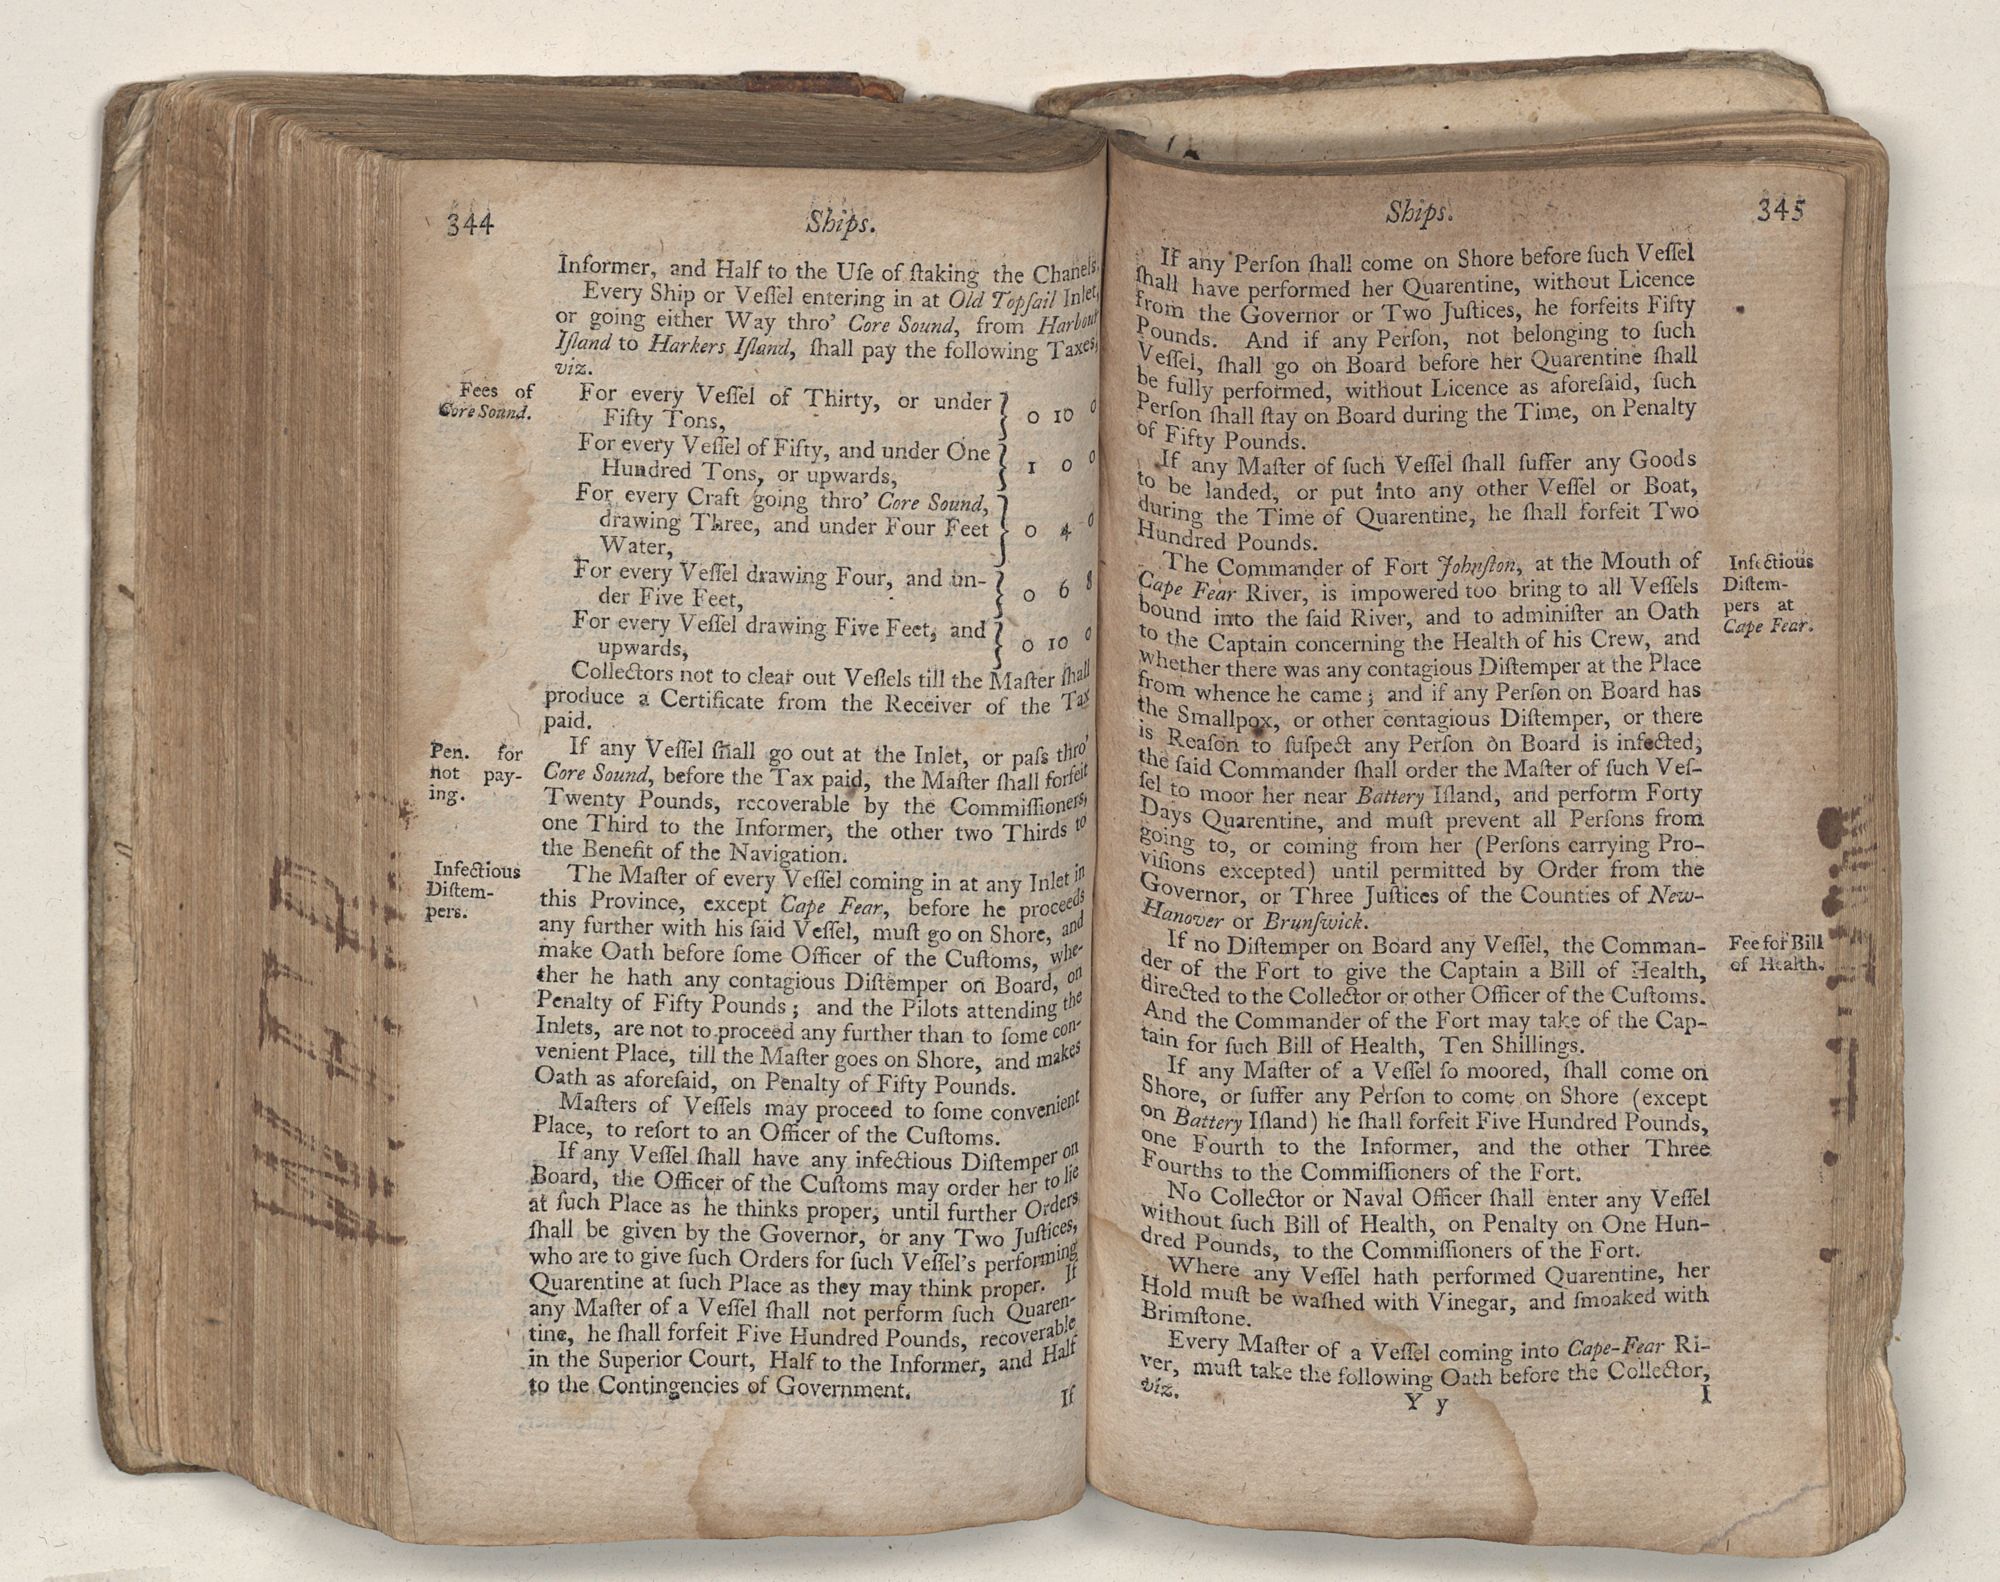 344
Ships.
Informer, and Half to the Uſe of ſtaking the Chanels.
Every Ship or Veſſel entering in at Old Topſail Inlet,
or going either Way thro' Core Sound, from Harbour
Iſland to Harkers Iſland, ſhall pay the following Taxes,
viz.
Fees of
Core Sound.
For every Veſſel of Thirty, or under
Fifty Tons, } 0 10 0
For every Veſſel of Fifty, and under One
Hundred Tons, or upwards, } 1 0 0
For every Craft going thro' Core Sound,
drawing Three, and under Four Feet } 0 4 0
Water,
For every Veſſel drawing Four, and un-
der Five Feet, } 0 6 8
For every Veſſel drawing Five Feet, and
upwards, } 0 10 0
Collectors not to clear out Veſſels till the Maſter ſhall
produce a Certificate from the Receiver of the Tax
paid.
Pen. for
not pay-
ing.
If any Veſſel ſhall go out at the Inlet, or paſs thro'
Core Sound, before the Tax paid, the Maſter ſhall forfeit
Twenty Pounds, recoverable by the Commiſſioners,
one Third to the Informer, the other two Thirds to
the Benefit of the Navigation.
Infectious
Diſtem-
pers.
The Maſter of every Veſſel coming in at any Inlet in
this Province, except Cape Fear, before he proceeds
any further with his ſaid Veſſel, muſt go on Shore, and
make Oath before ſome Officer of the Cuſtoms, whe-
ther he hath any contagious Diſtemper on Board, on
Penalty of Fifty Pounds; and the Pilots attending the
Inlets, are not to proceed any further than to ſome con-
venient Place, till the Maſter goes on Shore, and makes
Oath as aforeſaid, on Penalty of Fifty Pounds.
Maſters of Veſſels may proceed to ſome convenient
Place, to reſort to an Officer of the Cuſtoms.
If any Veſſel ſhall have any infectious Diſtemper on
Board, the Officer of the Cuſtoms may order her to lie
at ſuch Place as he thinks proper, until further Orders
ſhall be given by the Governor, or any Two Juſtices,
who are to give ſuch Orders for ſuch Veſſel's performing
Quarentine at ſuch Place as they may think proper. If
any Maſter of a Veſſel ſhall not perform ſuch Quaren-
tine, he ſhall forfeit Five Hundred Pounds, recoverable
in the Superior Court, Half to the Informer, and Half
to the Contingencies of Government.
If
Ships.
345
If any Perſon ſhall come on Shore before ſuch Veſſel
ſhall have performed her Quarentine, without Licence
from the Governor or Two Juſtices, he forfeits Fifty
Pounds. And if any Perſon, not belonging to ſuch
Veſſel, ſhall go on Board before her Quarentine ſhall
be fully performed, without Licence as aforeſaid, ſuch
Perſon ſhall ſtay on Board during the Time, on Penalty
of Fifty Pounds.
If any Maſter of ſuch Veſſel ſhall ſuffer any Goods
to be landed, or put into any other Veſſel or Boat,
during the Time of Quarentine, he ſhall forfeit Two
Hundred Pounds.
Infectious
Diſtem-
pers at
Cape Fear.
The Commander of Fort Johnſton, at the Mouth of
Cape Fear River, is impowered too bring to all Veſſels
bound into the ſaid River, and to adminiſter an Oath
to the Captain concerning the Health of his Crew, and
whether there was any contagious Diſtemper at the Place
from whence he came; and if any Perſon on Board has
the Smallpox, or other contagious Diſtemper, or there
is Reaſon to ſuſpect any Perſon on Board is infected,
the ſaid Commander ſhall order the Maſter of ſuch Veſ-
ſel to moor her near Battery Iſland, and perform Forty
Days Quarentine, and muſt prevent all Perſons from
going to, or coming from her (Perſons carrying Pro-
viſions excepted) until permitted by Order from the
Governor, or Three Juſtices of the Counties of New-
Hanover or Brunſwick.
Fee for Bill
of Health.
If no Diſtemper on Board any Veſſel, the Comman-
der of the Fort to give the Captain a Bill of Health,
directed to the Collector or other Officer of the Cuſtoms.
And the Commander of the Fort may take of the Cap-
tain for ſuch Bill of Health, Ten Shillings.
If any Maſter of a Veſſel ſo moored, ſhall come on
Shore, or ſuffer any Perſon to come on Shore (except
on Battery Iſland) he ſhall forfeit Five Hundred Pounds,
one Fourth to the Informer, and the other Three
Fourths to the Commiſſioners of the Fort.
No Collector or Naval Officer ſhall enter any Veſſel
without ſuch Bill of Health, on Penalty on One Hun-
dred Pounds, to the Commiſſioners of the Fort.
Where any Veſſel hath performed Quarentine, her
Hold muſt be waſhed with Vinegar, and ſmoaked with
Brimſtone.
Every Maſter of a Veſſel coming into Cape-Fear Ri-
ver, muſt take the following Oath before the Collector,
viz.
Y y
I